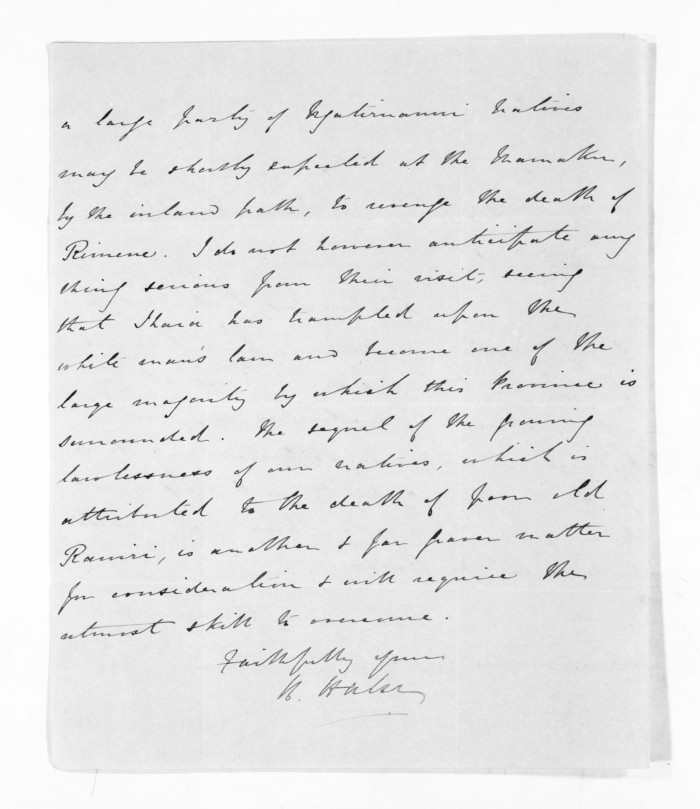 a large party of Ngatiruanui natives
may be shortly expected at the Mamaku,
by the inland path, to revenge the death of
Rimene. I do not however anticipate any
thing serious from their visit, seeing
that Ihaia has trampled upon the
white man's law and become one of the
large majority by which this Province is
surrounded. The sequel of the growing
lawlessness of our natives, which is
attributed to the death of poor old
Rawiri, is another & far graver matter
for consideration & will require the
utmost skill to overcome.
Faithfully yours
H. Halse